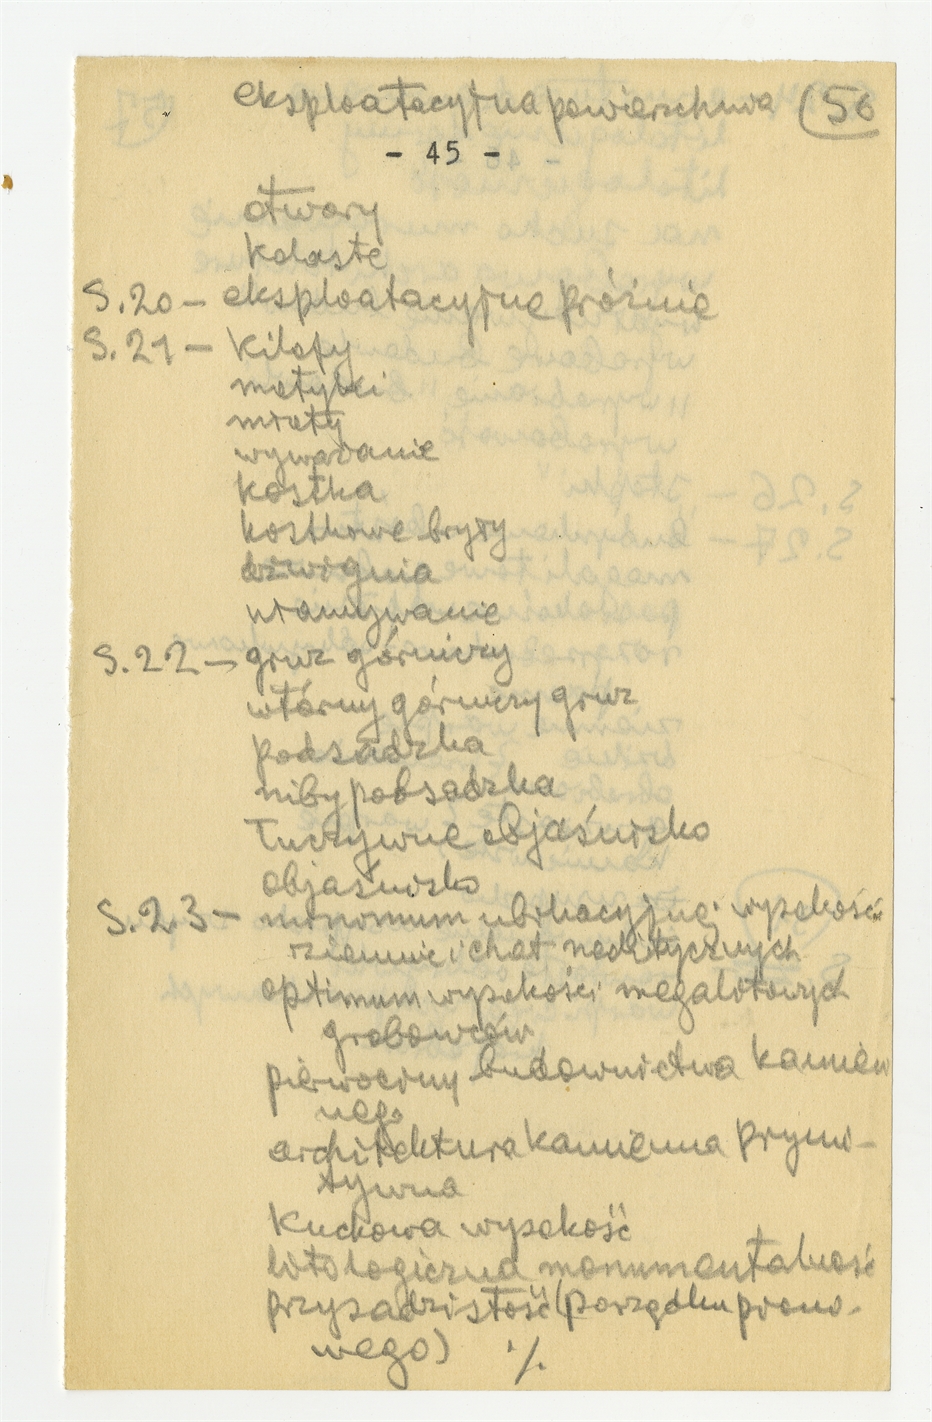 eksploatacyjna powierzchnia (56
- 45 -
otwory
kolaste
S.20 - eksploatacyjne próżnie
S.21 - kilofy
motyki
młoty
wyważanie
kostka
kostkowe bryły
dźwignia
włamywanie
S.22 - gruz górniczy
wtórny górniczy gruz
podsadzka
niby podsadzka
łuczywne objaśnisko
objaśnisko
S.23 - minimum ubikacyjnej wysokości
ziemnie i chat neolitycznych
optimum wysokości megalitowych
grobowców
pierwociny budownictwa kamien
nego
architektura kamienna prymi-
tywna
kuckowa wysokość
litologiczna monumentalność
przysadzistość (porządku piono-
wego) ./.